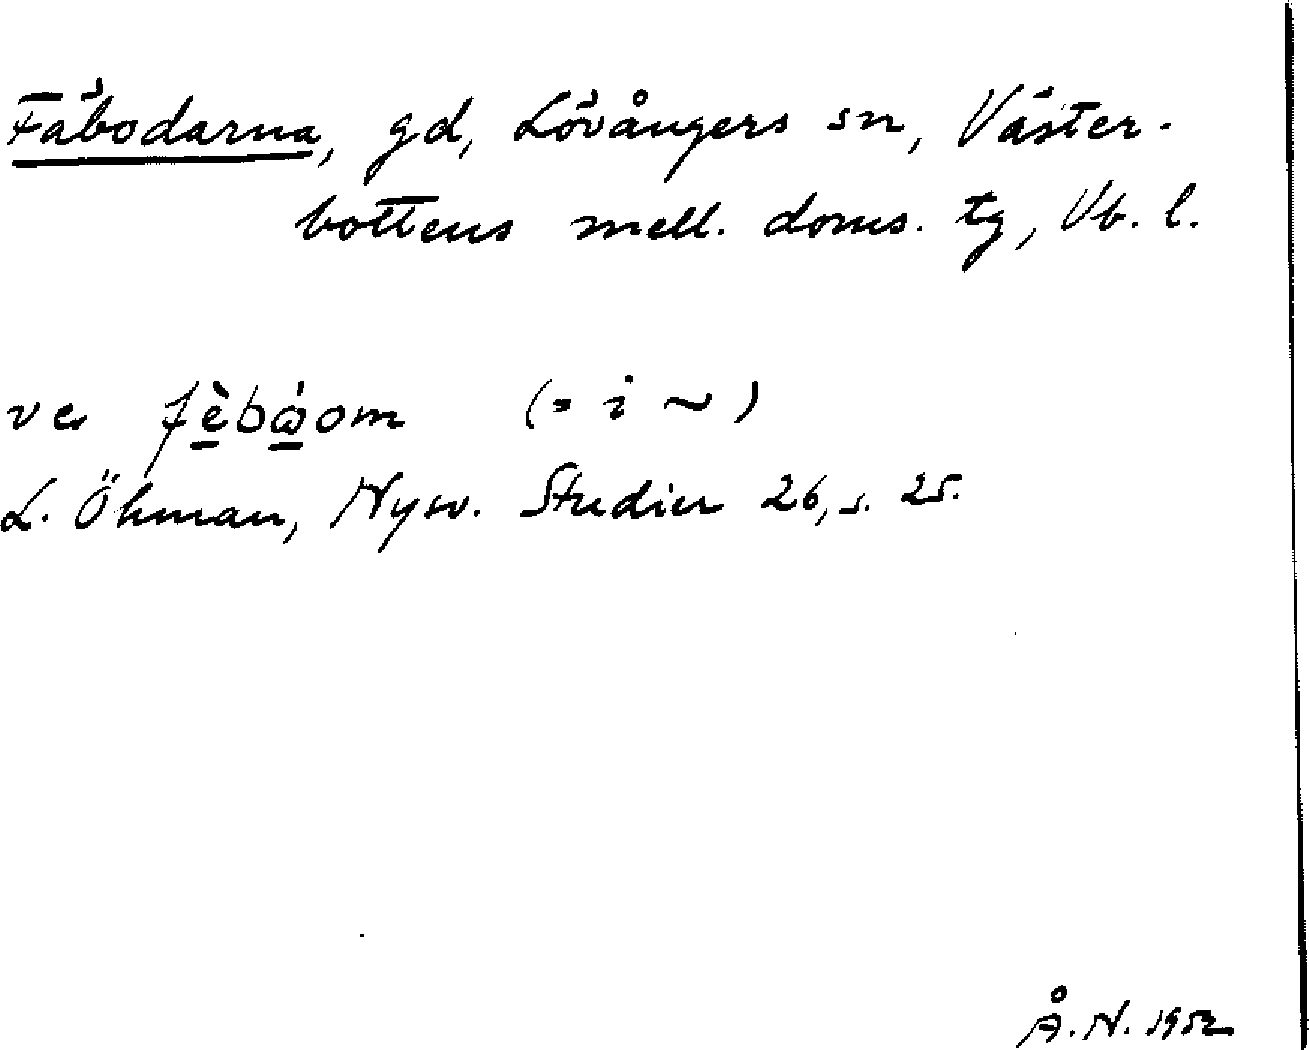 Fäbodarna, gd, Lövångers sn, Väster-
bottens mell. doms. tg, Vb. l.
ve fèbòom (= i ~)
L. Öhman, Nysv. Studier 26, s. 25.
Å. N. 1952